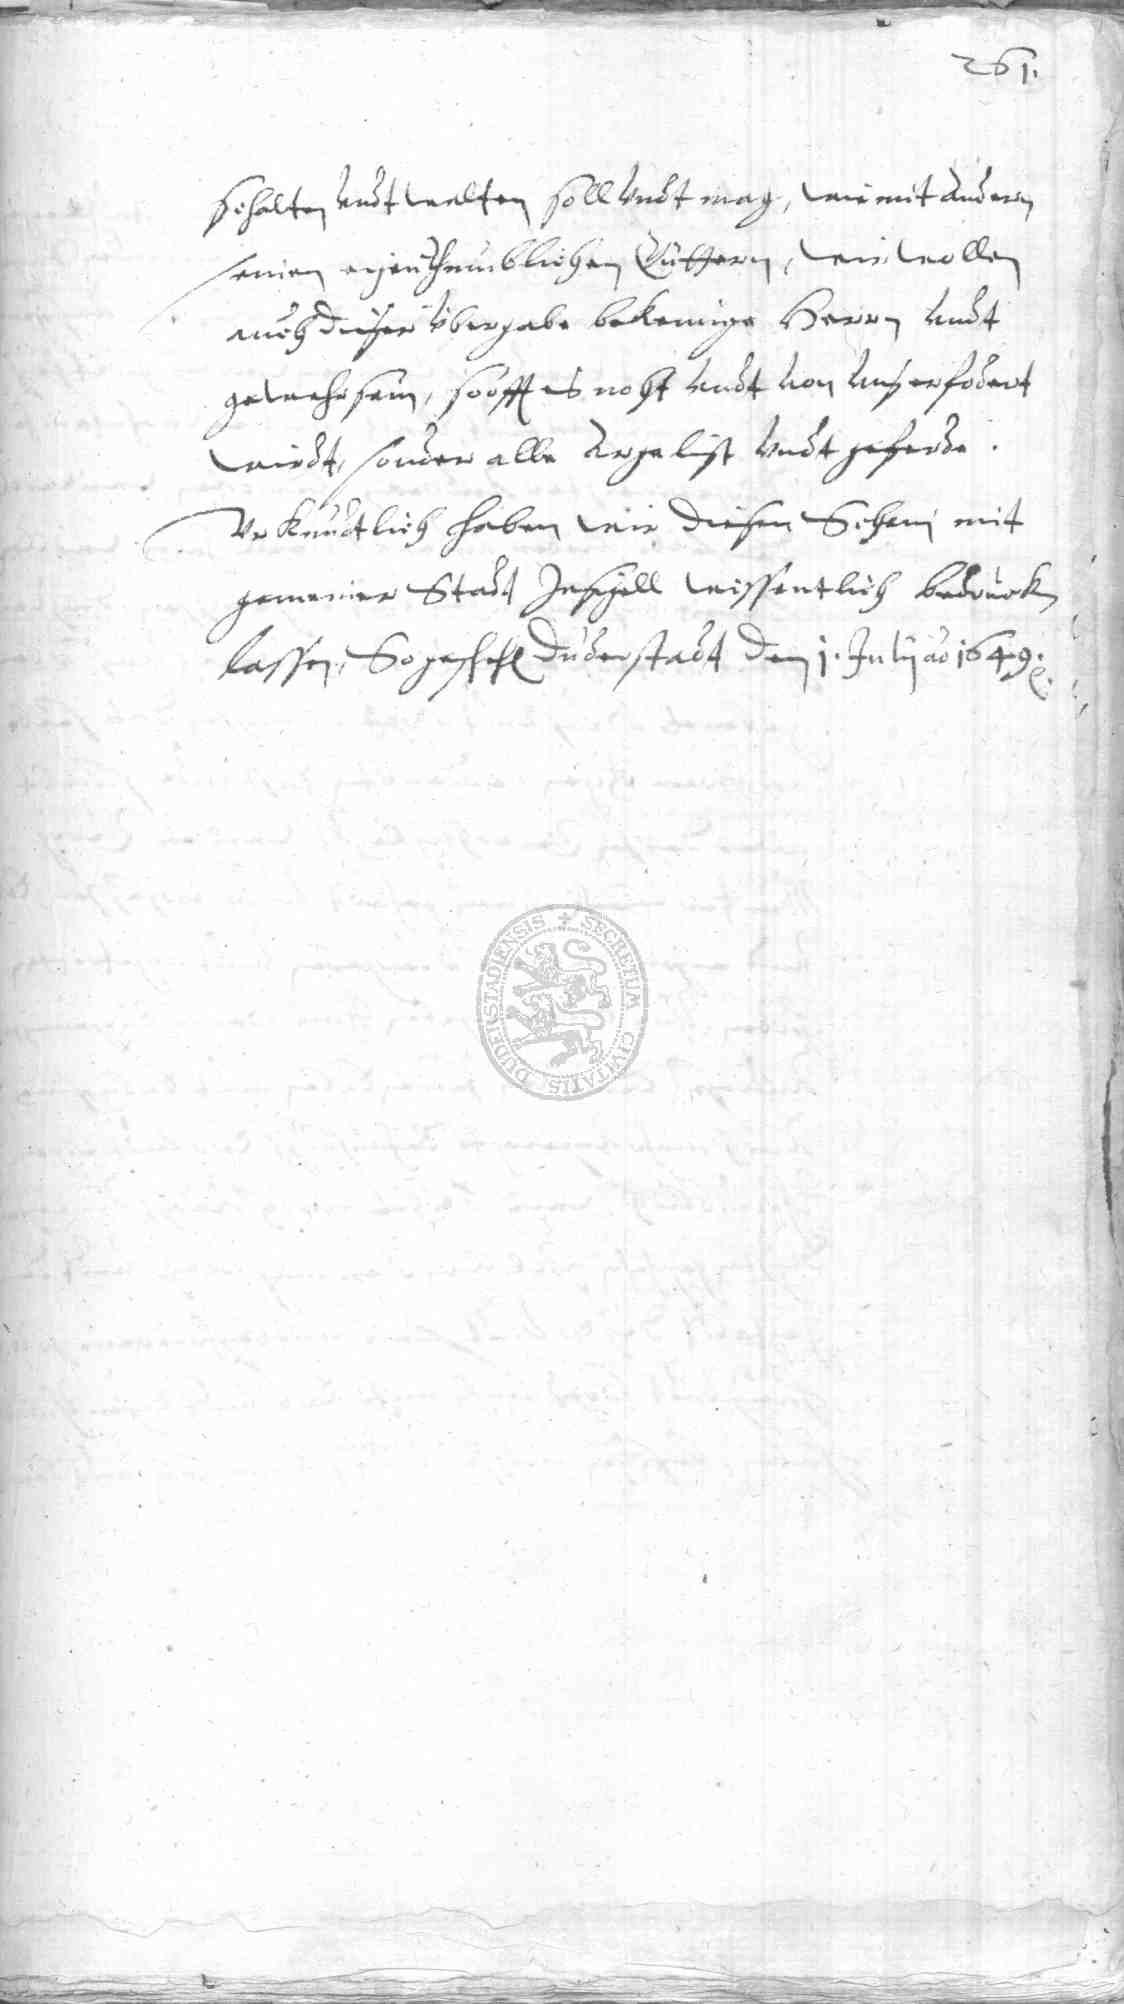 261.
schalten undt walten soll undt mag, wie mit andern
seinen eigenthumblichen Güttern, wie wollen
auch dieser übergabe bekennige Herrn undt
gewehr sein, so offt es noht undt von unß erfodert
wirdt, sonder alle Argelist undt geferde.
Uhrkundtlich haben wir diesen Schein mit
gemeiner Stadt Insigell wissentlich bedrucken
lassen, So geschehen Duderstadt den 1. Julij ao 1649.
SECRETUM CIVITATIS DUDERSTADIENSIS